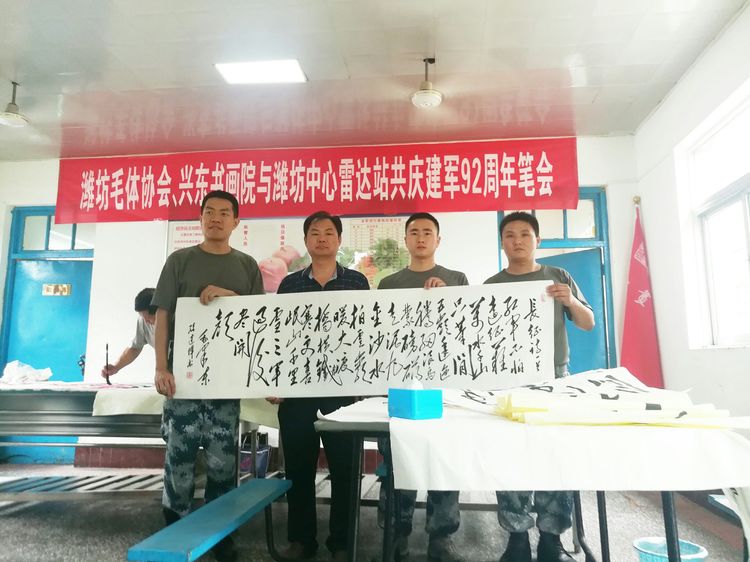 潍坊毛体协会、兴东书画院与潍坊中心雷达站共庆建军92周年笔会
长征诗
红军不怕
远征难
万水千山
只等闲
五岭逶迤
腾细浪乌
蒙磅礴
走泥丸
金沙水
拍云崖
暖大渡
桥横铁
索寒更喜
岷山千里
雪三军
过后
尽开
颜
毛泽东